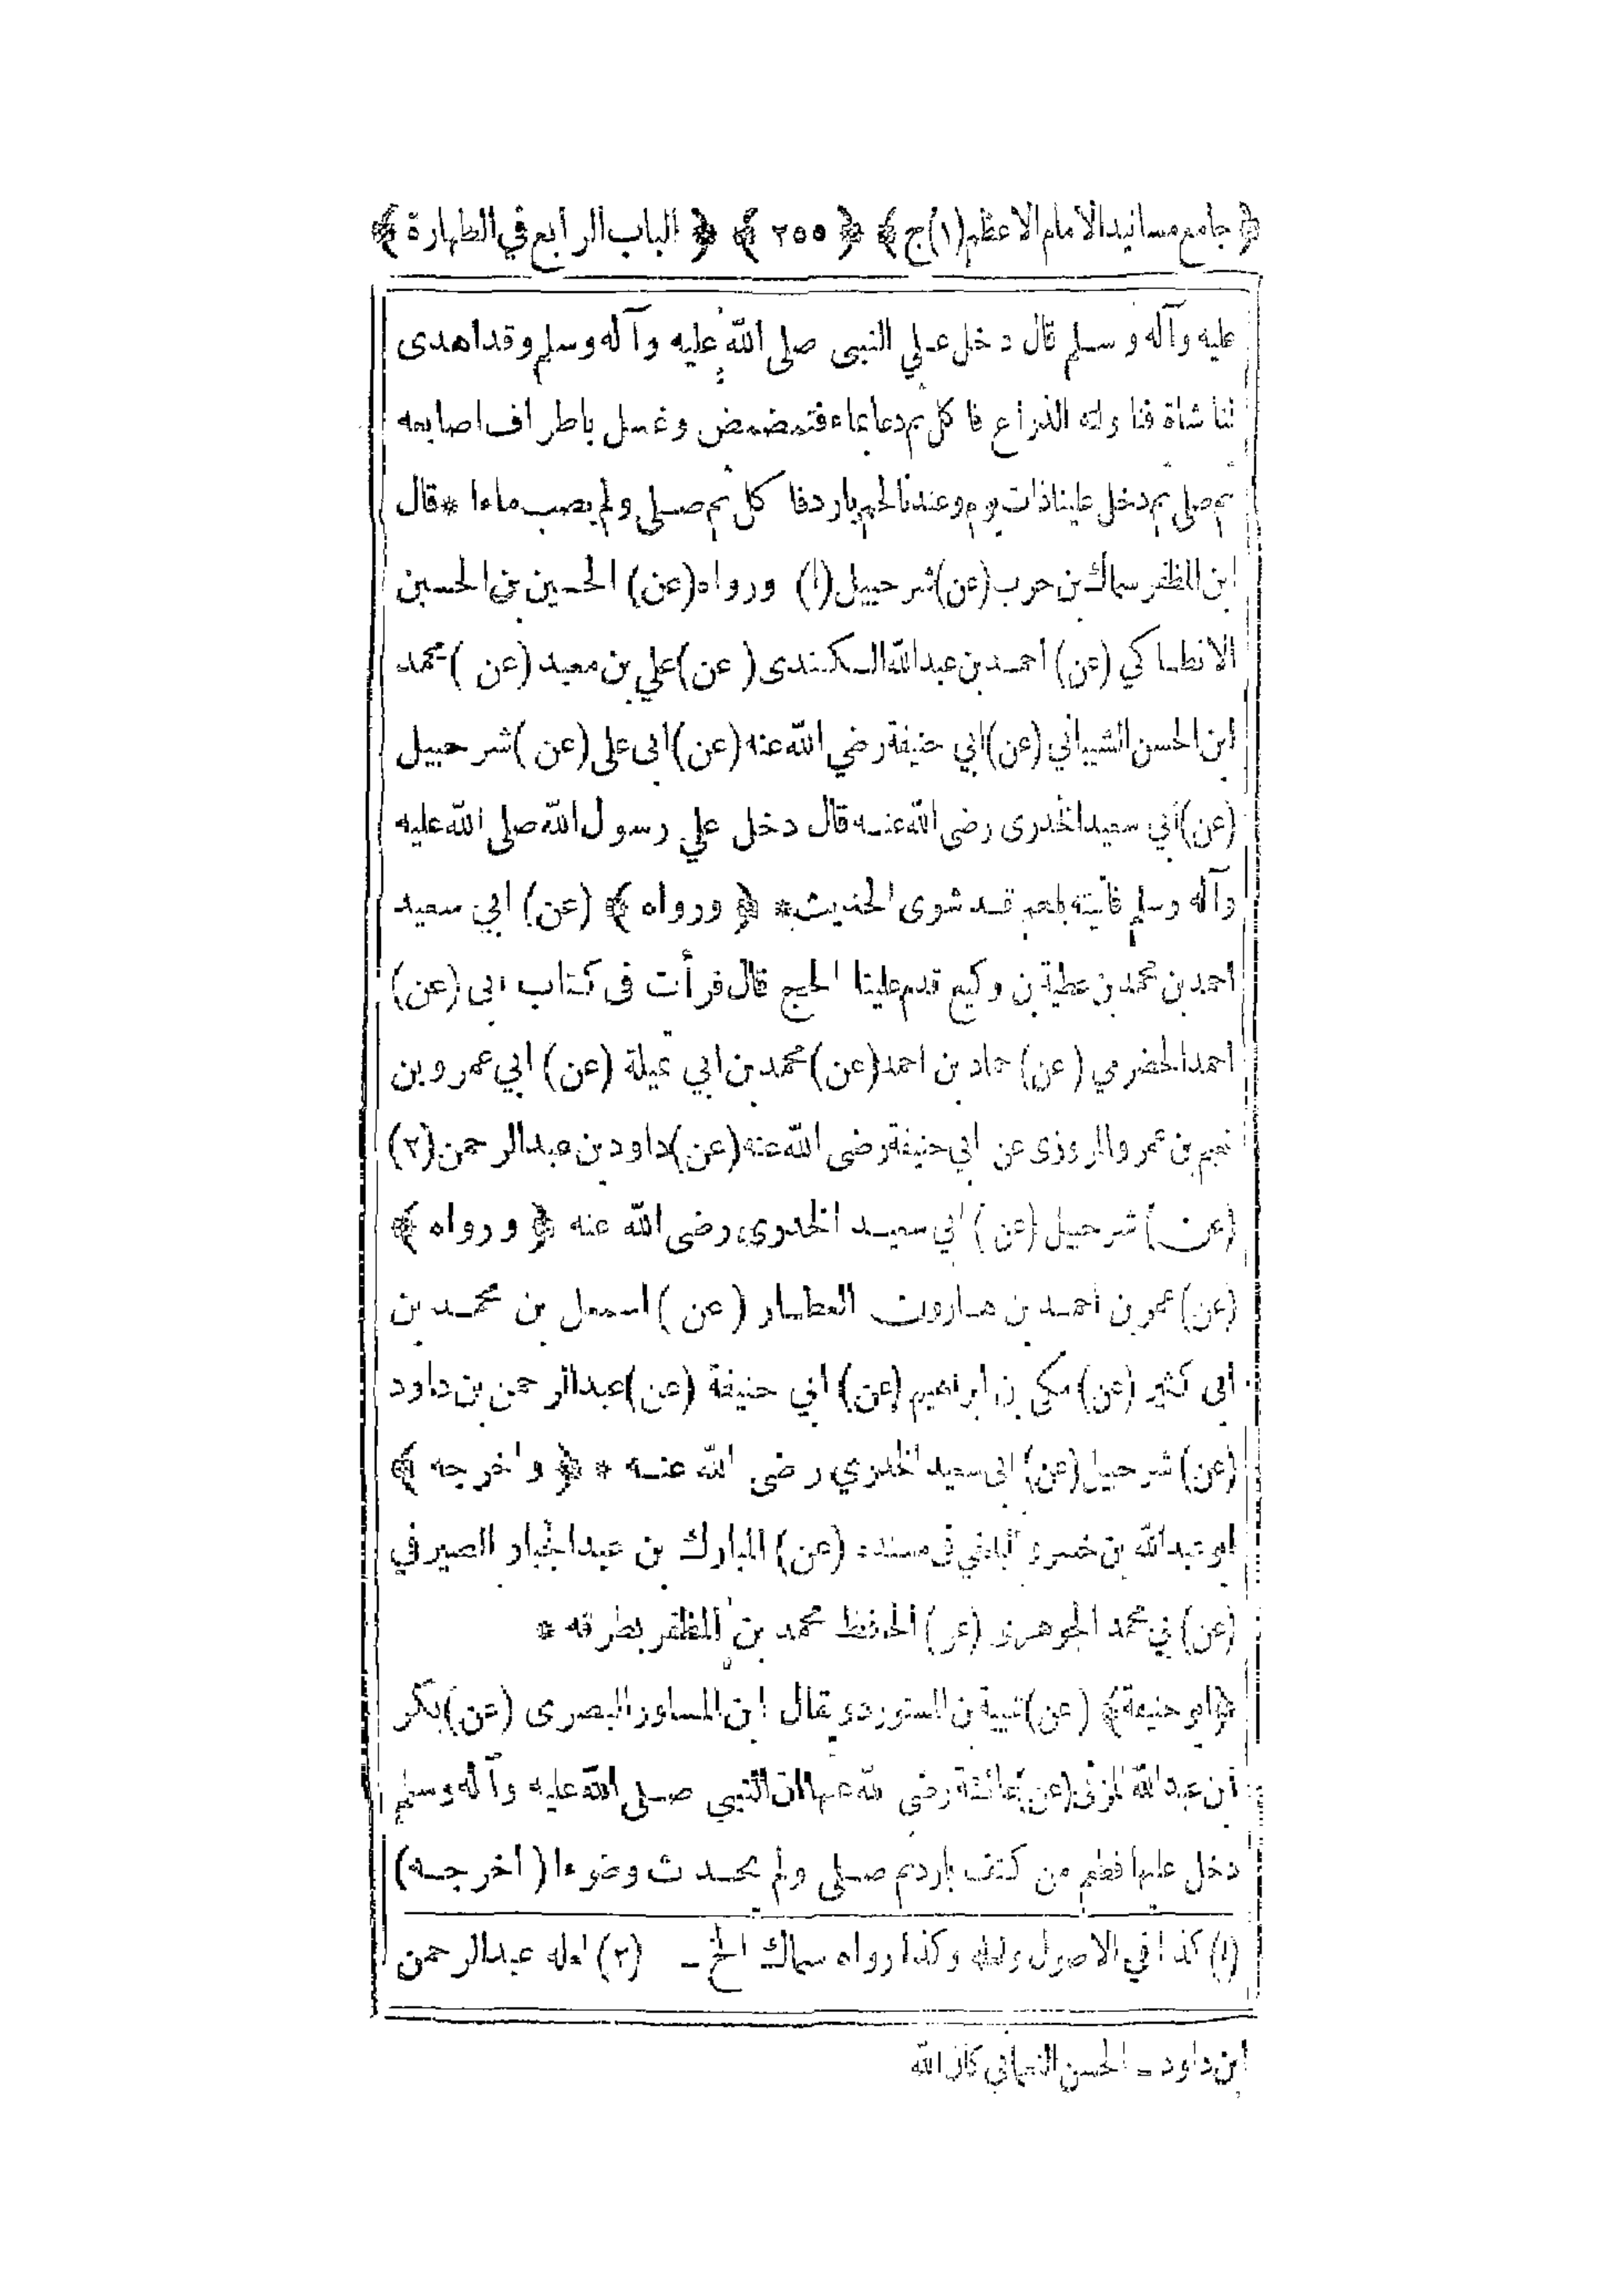 ﴿ جامع مسانيد الامام الاعظم (١) ج ﴾ ﴿ ٢٥٥ ﴾ ﴿ الباب الرابع في الطهارة ﴾
عليه وآله وسلم قال دخل علي النبي صلى الله عليه وآله وسلم وقد اهدى
لنا شاة فناولته الذراع فاكل ثم دعا بماء فتمضمض وغسل باطراف اصابعه
ثم صلى ثم دخل علينا ذات يوم وعندنا لحم بارد فاكل ثم صلى ولم يصب ماءا * قال
ابن المظفر سماك بن حرب (عن) شرحبيل (١) ورواه (عن) الحسين بن الحسين
الانطاكي (عن) احمد بن عبدالله الكندى (عن) علي بن معبد (عن) محمد
ابن الحسن الشيباني (عن) ابي حنيفة رضي الله عنه (عن) ابى على (عن) شرحبيل
(عن) أبي سعيد الخدرى رضى الله عنه قال دخل علي رسول الله صلى الله عليه
وآله وسلم فأتيته بلحم قد شوى الحديث * ﴿ ورواه ﴾ (عن) ابي سعيد
احمد بن محمد بن عطية بن وكيع قدم علينا الحج قال قرأت فى كتاب ابى (عن)
احمد الحضرمي (عن) حماد بن احمد (عن) محمد بن ابي (عن) ابي عمرو بن
نجيم بن عمرو المروزى عن ابي حنيفة رضى الله عنه (عن) داود بن عبدالرحمن (٢)
(عن) شرحبيل (عن) ابي سعيد الخدرى رضى الله عنه ﴿ ورواه ﴾
(عن) عمر بن احمد بن هارون العطار (عن) اسمعل بن محمد بن
ابى كثير (عن) مكي بن ابراهيم (عن) ابي حنيفة (عن) عبدالرحمن بن داود
(عن) شرحبيل (عن) ابى سعيد الخدري رضى الله عنه * ﴿ واخرجه ﴾
ابو عبدالله بن خسرو البلخي فى مسنده (عن) المبارك بن عبدالجبار الصيرفي
(عن) ابي محمد الجوهري (عن) الحافظ محمد بن المظفر بطرقه *
﴿ ابو حنيفة ﴾ (عن) بن المستورد ويقال ابن المساور البصرى (عن) بكر
ابن عبدالله المزنى (عن) عائشة رضي الله عنها ان النبي صلى الله عليه وآله وسلم
دخل عليها فطعم من كتف بارد ثم صلى ولم يحدث وضوءا (اخرجه)
(١) كذا في الاصول ولعله وكذا رواه سماك الخ ـ (٢) لعله عبدالرحمن
ابن داود ـ الحسن النعماني كان الله